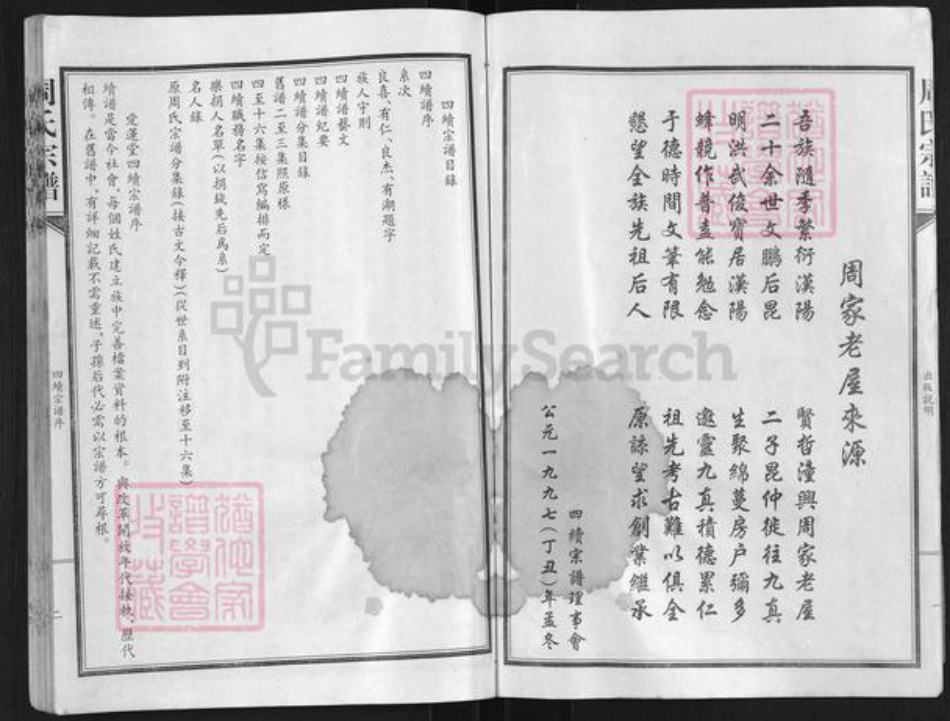 周氏宗譜
出版説明
周家老屋來源
吾族隨季繁衍漢陽 賢哲潼興周家老屋
二十余世文鵬后昆 二子昆仲徙往九真
明洪武俊寳居漢陽 生聚綿蔓房户彌多
蜂競作普盍能勉念 邀靈九真積德累仁
于德時間文筆有限 祖先考古難以俱全
懇望全族先祖后人 原諒望求創業继承
四續宗譜理事會
公元一九九七(丁丑)年孟冬
四續宗譜目錄
四續譜序
系次
良喜、有仁、良杰、有潮題字
族人字則
四續譜藝文
四續譜紀要
四續譜分集目録
舊譜二至三集照原樣
四至十六集按信寫編排而定
四續職務名字
樂捐人名單(以捐錢先后爲系)
名人錄
原周氏宗譜分集錄(接古文今釋)(從世系目到附注移至十六集)
愛蓮堂四續宗譜序
續譜是當今社會,每個姓氏建立族中完善檔案資料的根本。與改革開放年代接軌、歷代
相傳。在舊譜中,有詳細記載不需重述,子孫后代必需以宗譜方可尋根。
周氏宗譜
四續宗譜序
一
FamilySearch